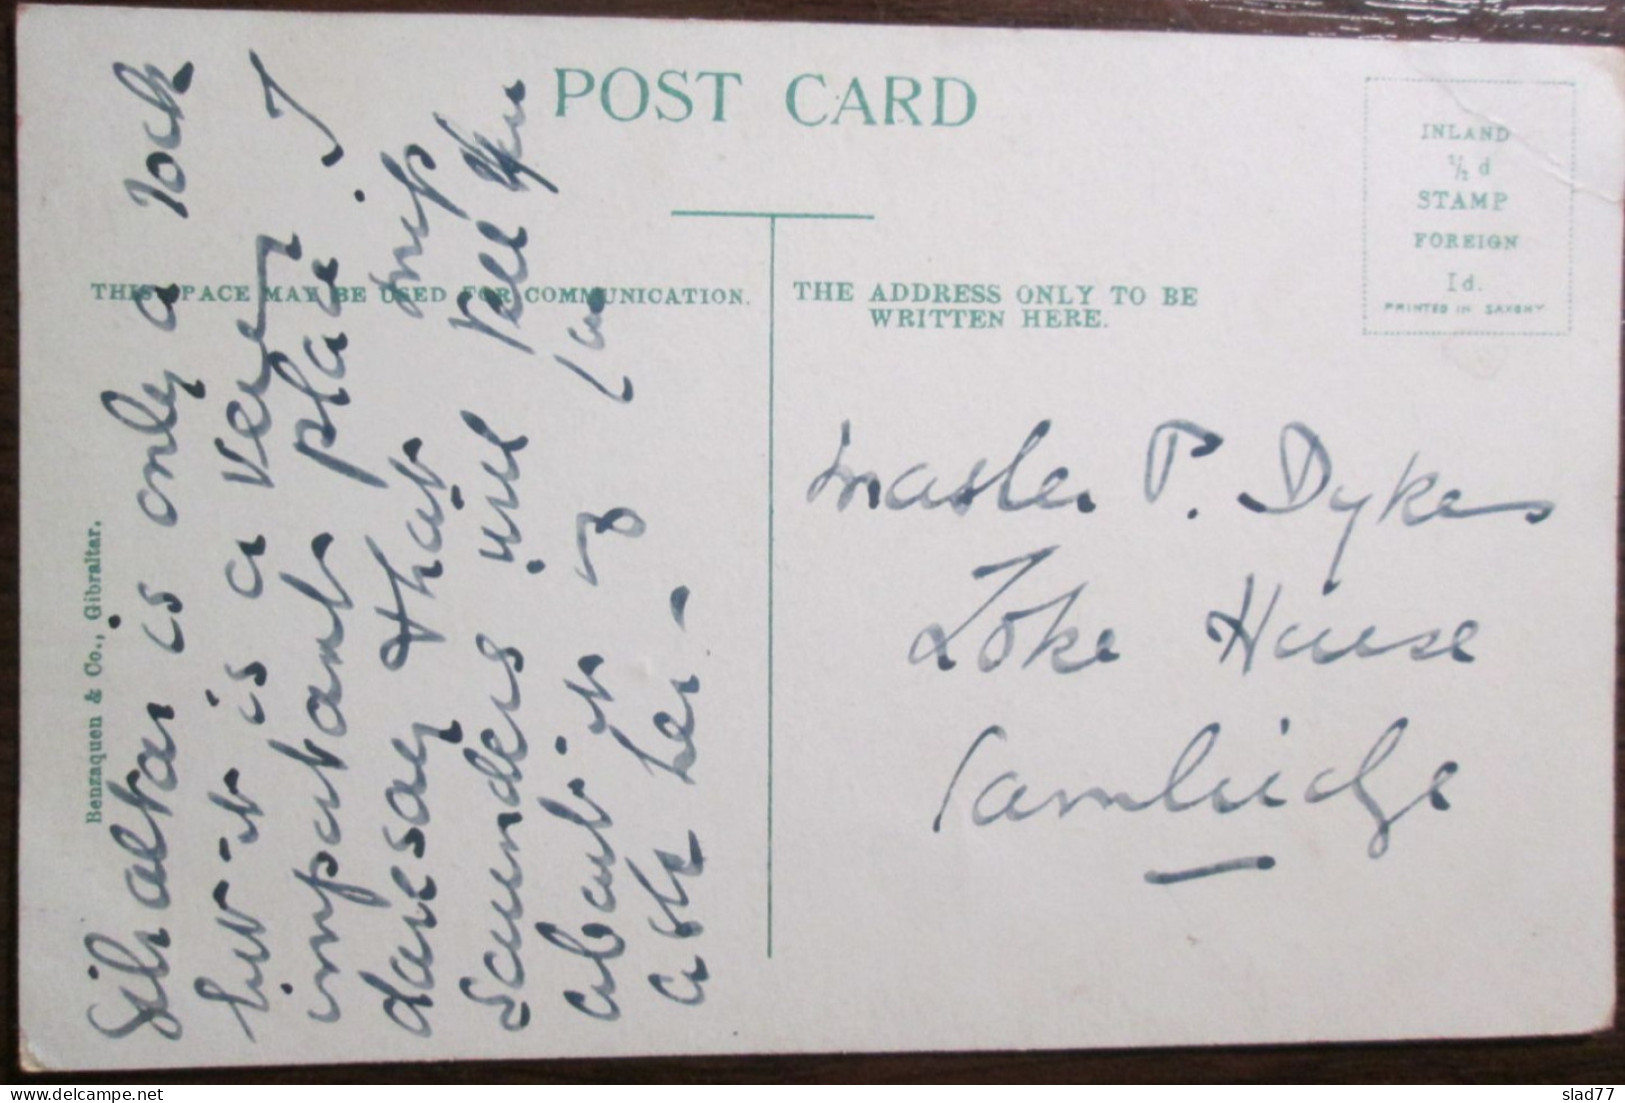 POST CARD
INLAND
½ d
STAMP
FOREIGN
1d.
PRINTED IN SAXONY
THIS SPACE MAY BE USED FOR COMMUNICATION.
THE ADDRESS ONLY TO BE
WRITTEN HERE.
Benzaquen & Co., Gibraltar.
Gibraltar is only a rock
but it is a very
important place. I
daresay that
Saunders will tell you
about it if you
ask her -
Master P. Dykes
Stoke House
Cambridge
slad77